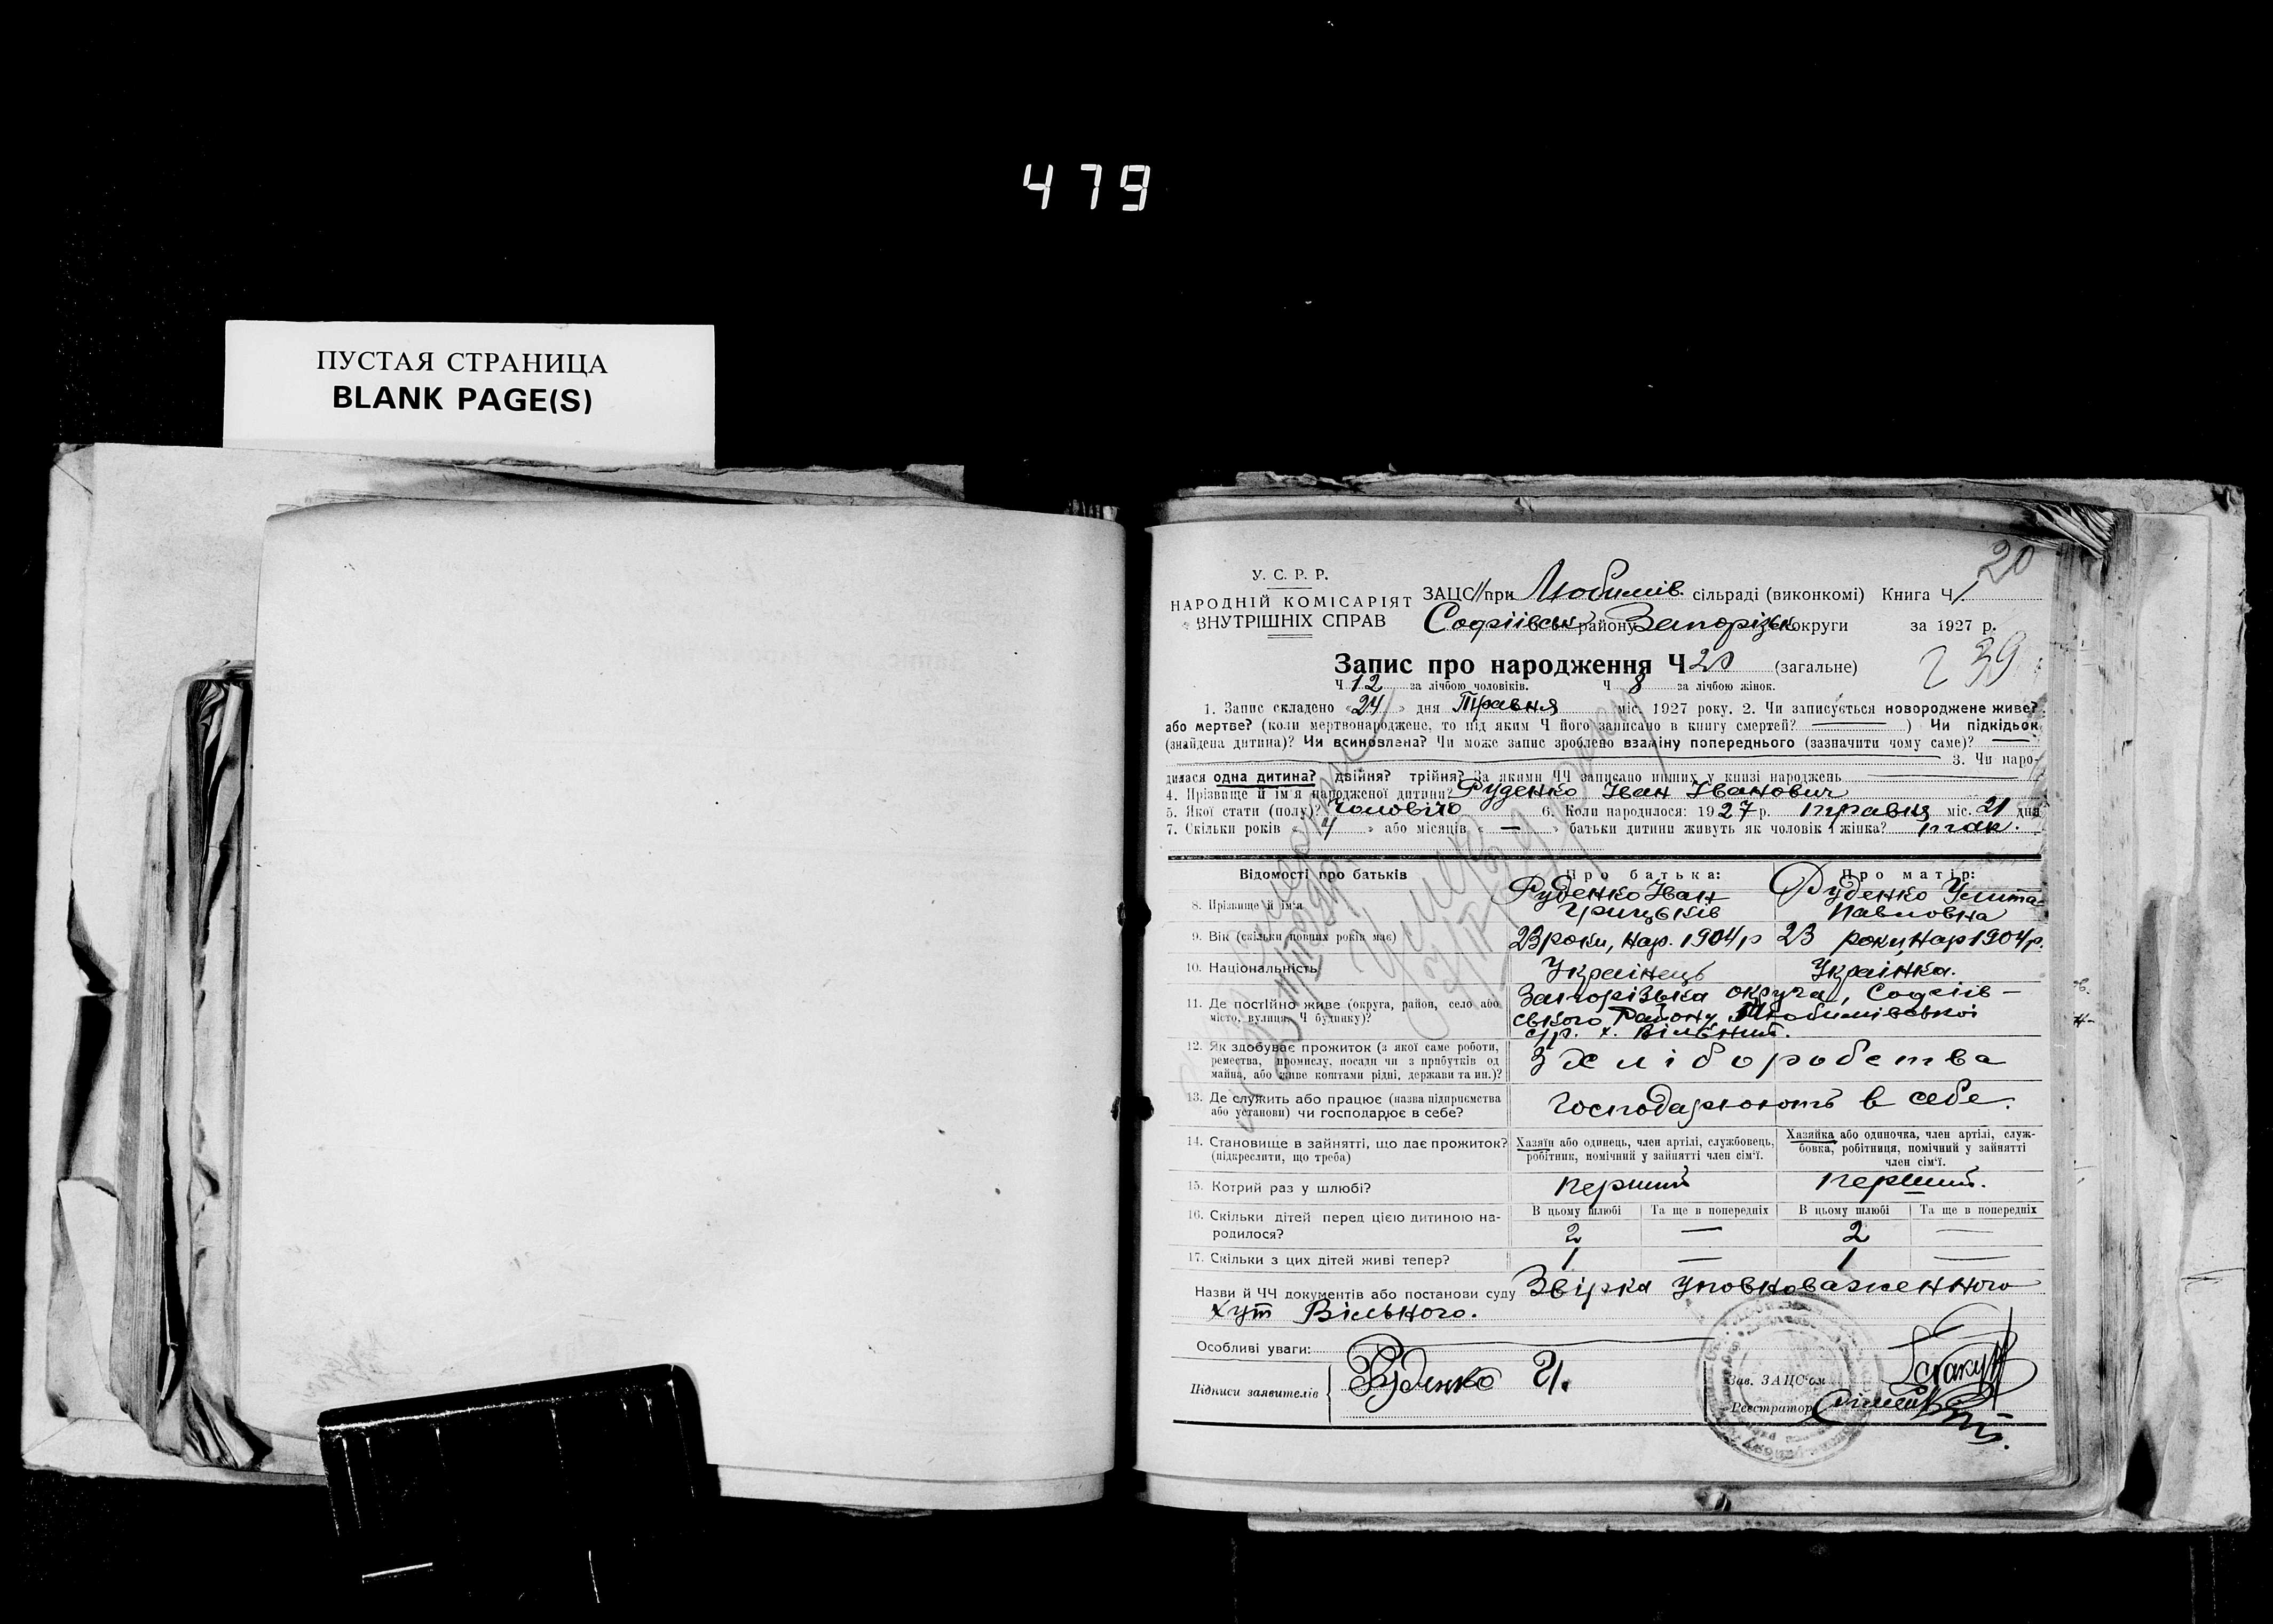 479
ПУСТАЯ СТРАНИЦА
BLANK PAGE(S)
20
У. С. Р. Р.
НАРОДНІЙ КОМІСАРІЯТ
ВНУТРІШНІХ СПРАВ
ЗАЦС при Любимів. сільраді (виконкомі) Книга Ч 1
Софіївськ району Запорізьк округи за 1927 р.
Запис про народження Ч 20 (загальне)
239
Ч 12 за лічбою чоловіків. Ч 8 за лічбою жінок.
1. Запис складено «24» дня Травня міс. 1927 року. 2. Чи записується новороджене живе?
або мертве? (коли мертвонароджене, то під яким Ч його записано в книгу смертей? ——) Чи підкідьок
(знайдена дитина)? Чи всиновлена? Чи може запис зроблено взаміну попереднього (зазначити чому саме)? —
3. Чи наро-
дилася одна дитина? двійня? трійня? За якими ЧЧ записано инших у книзі народжень ——
4. Прізвище й ім'я народженої дитини? Руденко Іван Іванович
5. Якої стати (полу)? Чоловічо 6. Коли народилося: 1927 р. травня міс. 21 дня
7. Скільки років « 4 » або місяців « — » батьки дитини живуть як чоловік і жінка? так.
Відомості про батьків Про батька: Про матір:
8. Прізвище й ім'я Руденко Іван Грицьків Руденко Улита Павловна
9. Вік (скільки повних років має) 23 роки, нар. 1904 р 23 роки, нар 1904 р.
10. Національність Українець Українка.
11. Де постійно живе (округа, район, село або місто, вулиця, Ч будинку)? Запорізька округа, Софіїв-
ського Району Любимівської
с/р. х. Вільний.
12. Як здобуває прожиток (з якої саме роботи, ремества, промислу, посади чи з прибутків од майна, або живе коштами рідні, держави та ин.)? З хліборобства
13. Де служить або працює (назва підприємства або установи) чи господарює в себе? Господарюють в себе.
14. Становище в зайнятті, що дає прожиток? (підкреслити, що треба) Хазяїн або одинець, член артілі, службовець, робітник, помічний у зайнятті член сім'ї. Хазяйка або одиночка, член артілі, служ-бовка, робітниця, помічний у зайнятті член сім'ї.
15. Котрий раз у шлюбі? перший перший.
В цьому шлюбі Та ще в попередніх В цьому шлюбі Та ще в попередніх
16. Скільки дітей перед цією дитиною на-родилося? 2 — 2 —
17. Скільки з цих дітей живі тепер? 1 — 1 —
Назви й ЧЧ документів або постанови суду Звірка уповноваженного
хут Вільного.
Особливі уваги:
Підписи заявителів Руденко И.
Зав. ЗАЦС'ом
Реєстратор